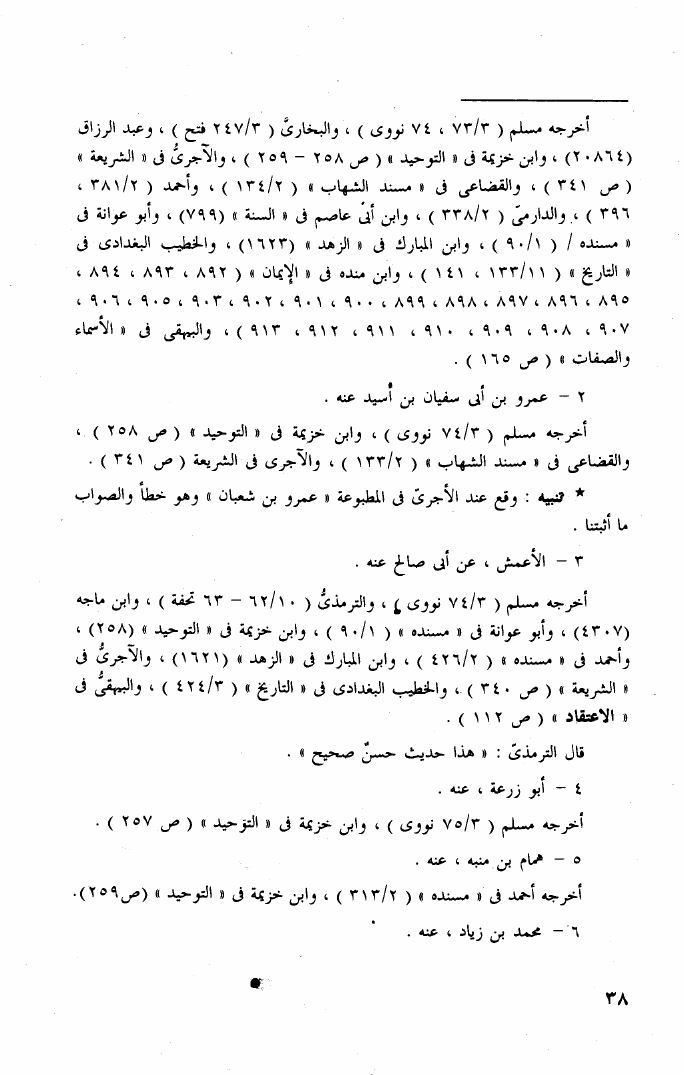 أخرجه مسلم ( ٧٣/٣ ، ٧٤ نووى ) ، والبخارىَّ ( ٢٤٧/٣ فتح ) ، وعبد الرزاق
(٢٠٨٦٤) ، وابن خزيمة فى « التوحيد » ( ص ٢٥٨ – ٢٥٩ ) ، والآجرىُّ فى « الشريعة »
( ص ٣٤١ ) ، والقضاعى فى « مسند الشهاب » ( ١٣٤/٢ ) ، وأحمد ( ٣٨١/٢ ،
٣٩٦ ) ، والدارمىّ ( ٣٣٨/٢ ) ، وابن أبىْ عاصم فى « السنة » (٧٩٩) ، وأبو عوانة فى
« مسنده / ( ٩٠/١ ) ، وابن المبارك فى « الزهد » (١٦٢٣) ، والخطيب البغدادى فى
« التاريخ » ( ١٣٣/١١ ، ١٤١ ) ، وابن منده فى « الإيمان » ( ٨٩٢ ، ٨٩٣ ، ٨٩٤ ،
٨٩٥ ، ٨٩٦ ، ٨٩٧ ، ٨٩٨ ، ٨٩٩ ، ٩٠٠ ، ٩٠١ ، ٩٠٢ ، ٩٠٣ ، ٩٠٥ ، ٩٠٦ ،
٩٠٧ ، ٩٠٨ ، ٩٠٩ ، ٩١٠ ، ٩١١ ، ٩١٢ ، ٩١٣ ) ، والبيهقى فى « الأسماء
والصفات » ( ص ١٦٥ ) .
٢ – عمرو بن أبى سفيان بن أُسيد عنه .
أخرجه مسلم ( ٧٤/٣ نووى ) ، وابن خزيمة فى « التوحيد » ( ص ٢٥٨ ) ،
والقضاعى فى « مسند الشهاب » ( ١٣٣/٢ ) ، والآجرى فى الشريعة ( ص ٣٤١ ) .
* تنبيه : وقع عند الأجرىّ فى المطبوعة « عمرو بن شعبان » وهو خطأ والصواب
ما أثبتنا .
٣ – الأعمش ، عن أبى صالح عنه .
أخرجه مسلم ( ٧٤/٣ نووى ) ، والترمذىُّ ( ٦٢/١٠ – ٦٣ تحفة ) ، وابن ماجه
(٤٣٠٧) ، وأبو عوانة فى « مسنده » ( ٩٠/١ ) ، وابن خزيمة فى « التوحيد » (٢٥٨) ،
وأحمد فى « مسنده » ( ٤٢٦/٢ ) ، وابن المبارك فى « الزهد » (١٦٢١) ، والآجرىُّ فى
« الشريعة » ( ص ٣٤٠ ) ، والخطيب البغدادى فى « التاريخ » ( ٤٢٤/٣ ) ، والبيهقىُّ فى
« الاعتقاد » ( ص ١١٢ ) .
قال الترمذىّ : « هذا حديث حسنٌ صحيح » .
٤ – أبو زرعة ، عنه .
أخرجه مسلم ( ٧٥/٣ نووى ) ، وابن خزيمة فى « التوحيد » ( ص ٢٥٧ ) .
٥ – همام بن منبه ، عنه .
أخرجه أحمد فى « مسنده » ( ٣١٣/٢ ) ، وابن خزيمة فى « التوحيد » (ص٢٥٩) .
٦ – محمد بن زياد ، عنه .
٣٨